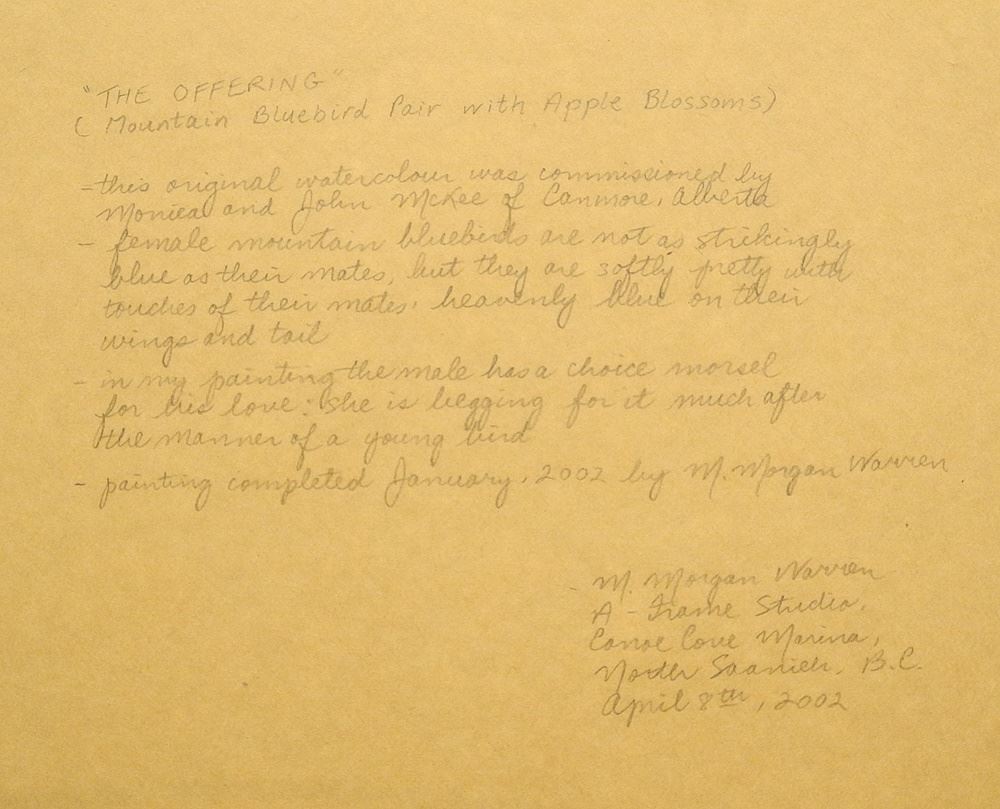 "THE OFFERING"
( Mountain Bluebird Pair with Apple Blossoms)
- this original watercolour was commissioned by
Monica and John McKee of Canmore, Alberta
- female mountain bluebirds are not as strikingly
blue as their mates, but they are softly pretty with
touches of their mates' heavenly blue on their
wings and tail
- in my painting the male has a choice morsel
for his love: She is begging for it much after
the manner of a young bird
- painting completed January, 2002 by M. Morgan Warren
M. Morgan Warren
A-Frame Studio,
Canoe Cove Marina,
North Saanich, B.C.
April 8th, 2002